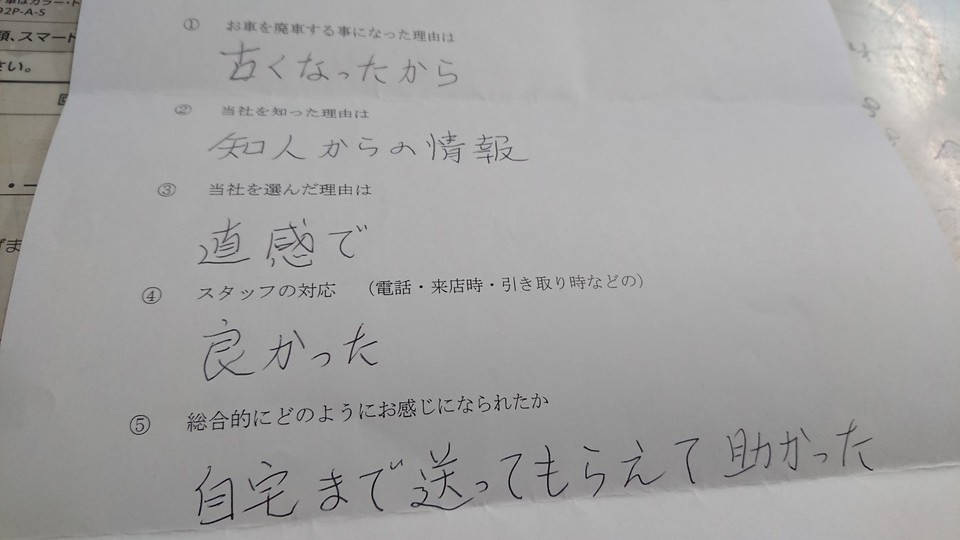 92P-A-S
さい。
① お車を廃車する事になった理由は
古くなったから
② 当社を知った理由は
知人からの情報
③ 当社を選んだ理由は
直感で
④ スタッフの対応 （電話・来店時・引き取り時などの）
良かった
⑤ 総合的にどのようにお感じになられたか
自宅まで送ってもらえて助かった